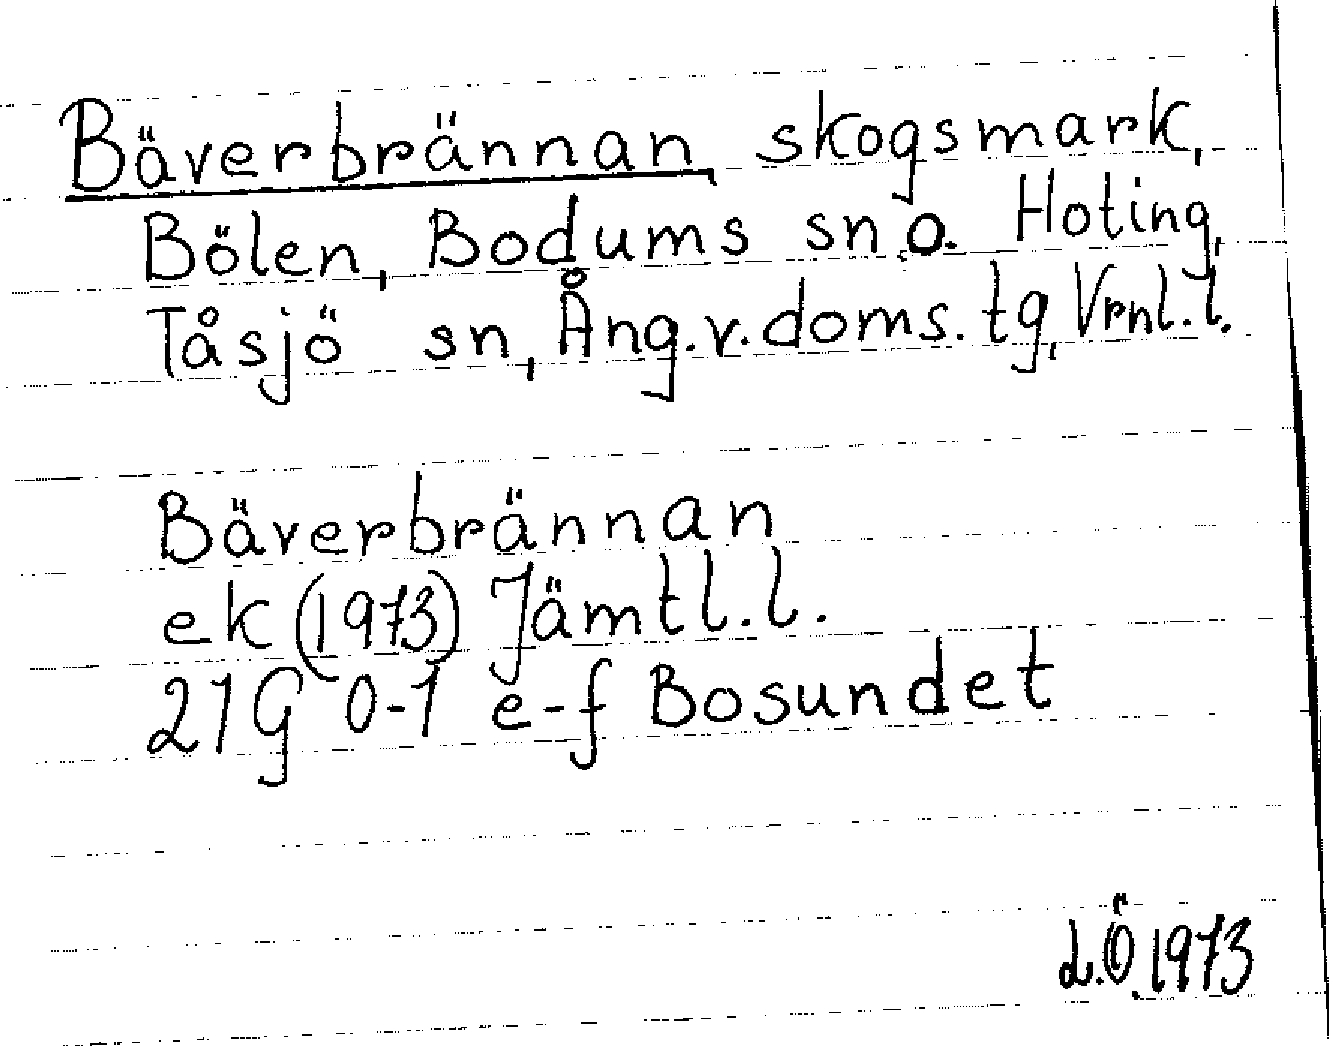 Bäverbrännan, skogsmark,
Bölen, Bodums sn, o. Hoting,
Tåsjö sn, Ång.v.doms.tg, Vrnl.l.
Bäverbrännan
ek (1973) Jämtl.l.
21G 0-1 e-f Bosundet
L.Ö. 1973